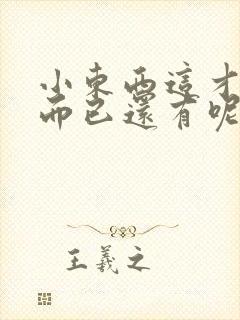 小東西這才
而已還有呢
王羲之